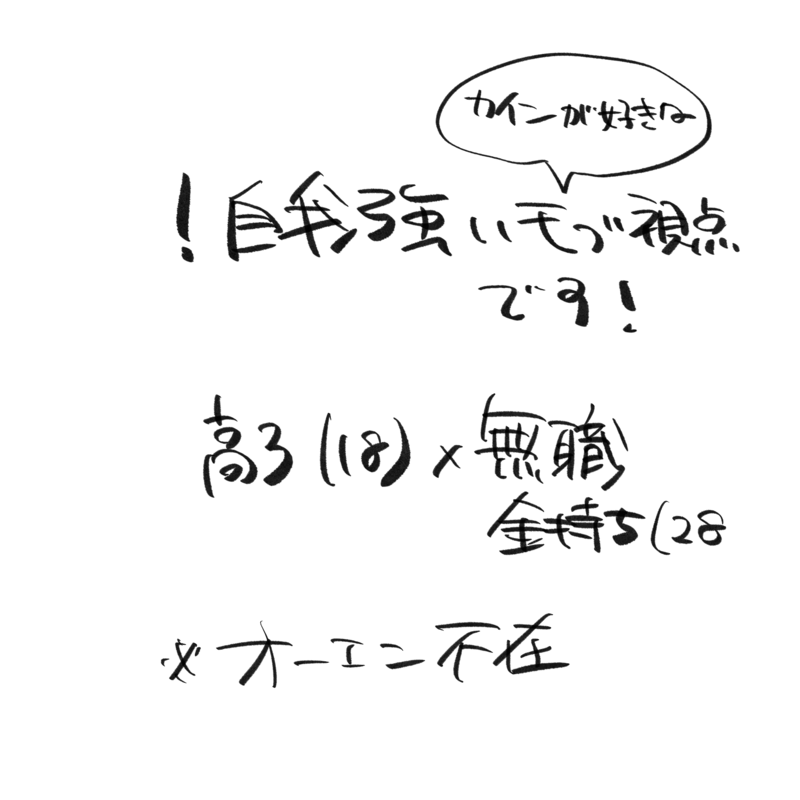 カインが好きな
！自我強いモブ視点
です！
高3(18)×無職
金持ち(28
※オーエン不在